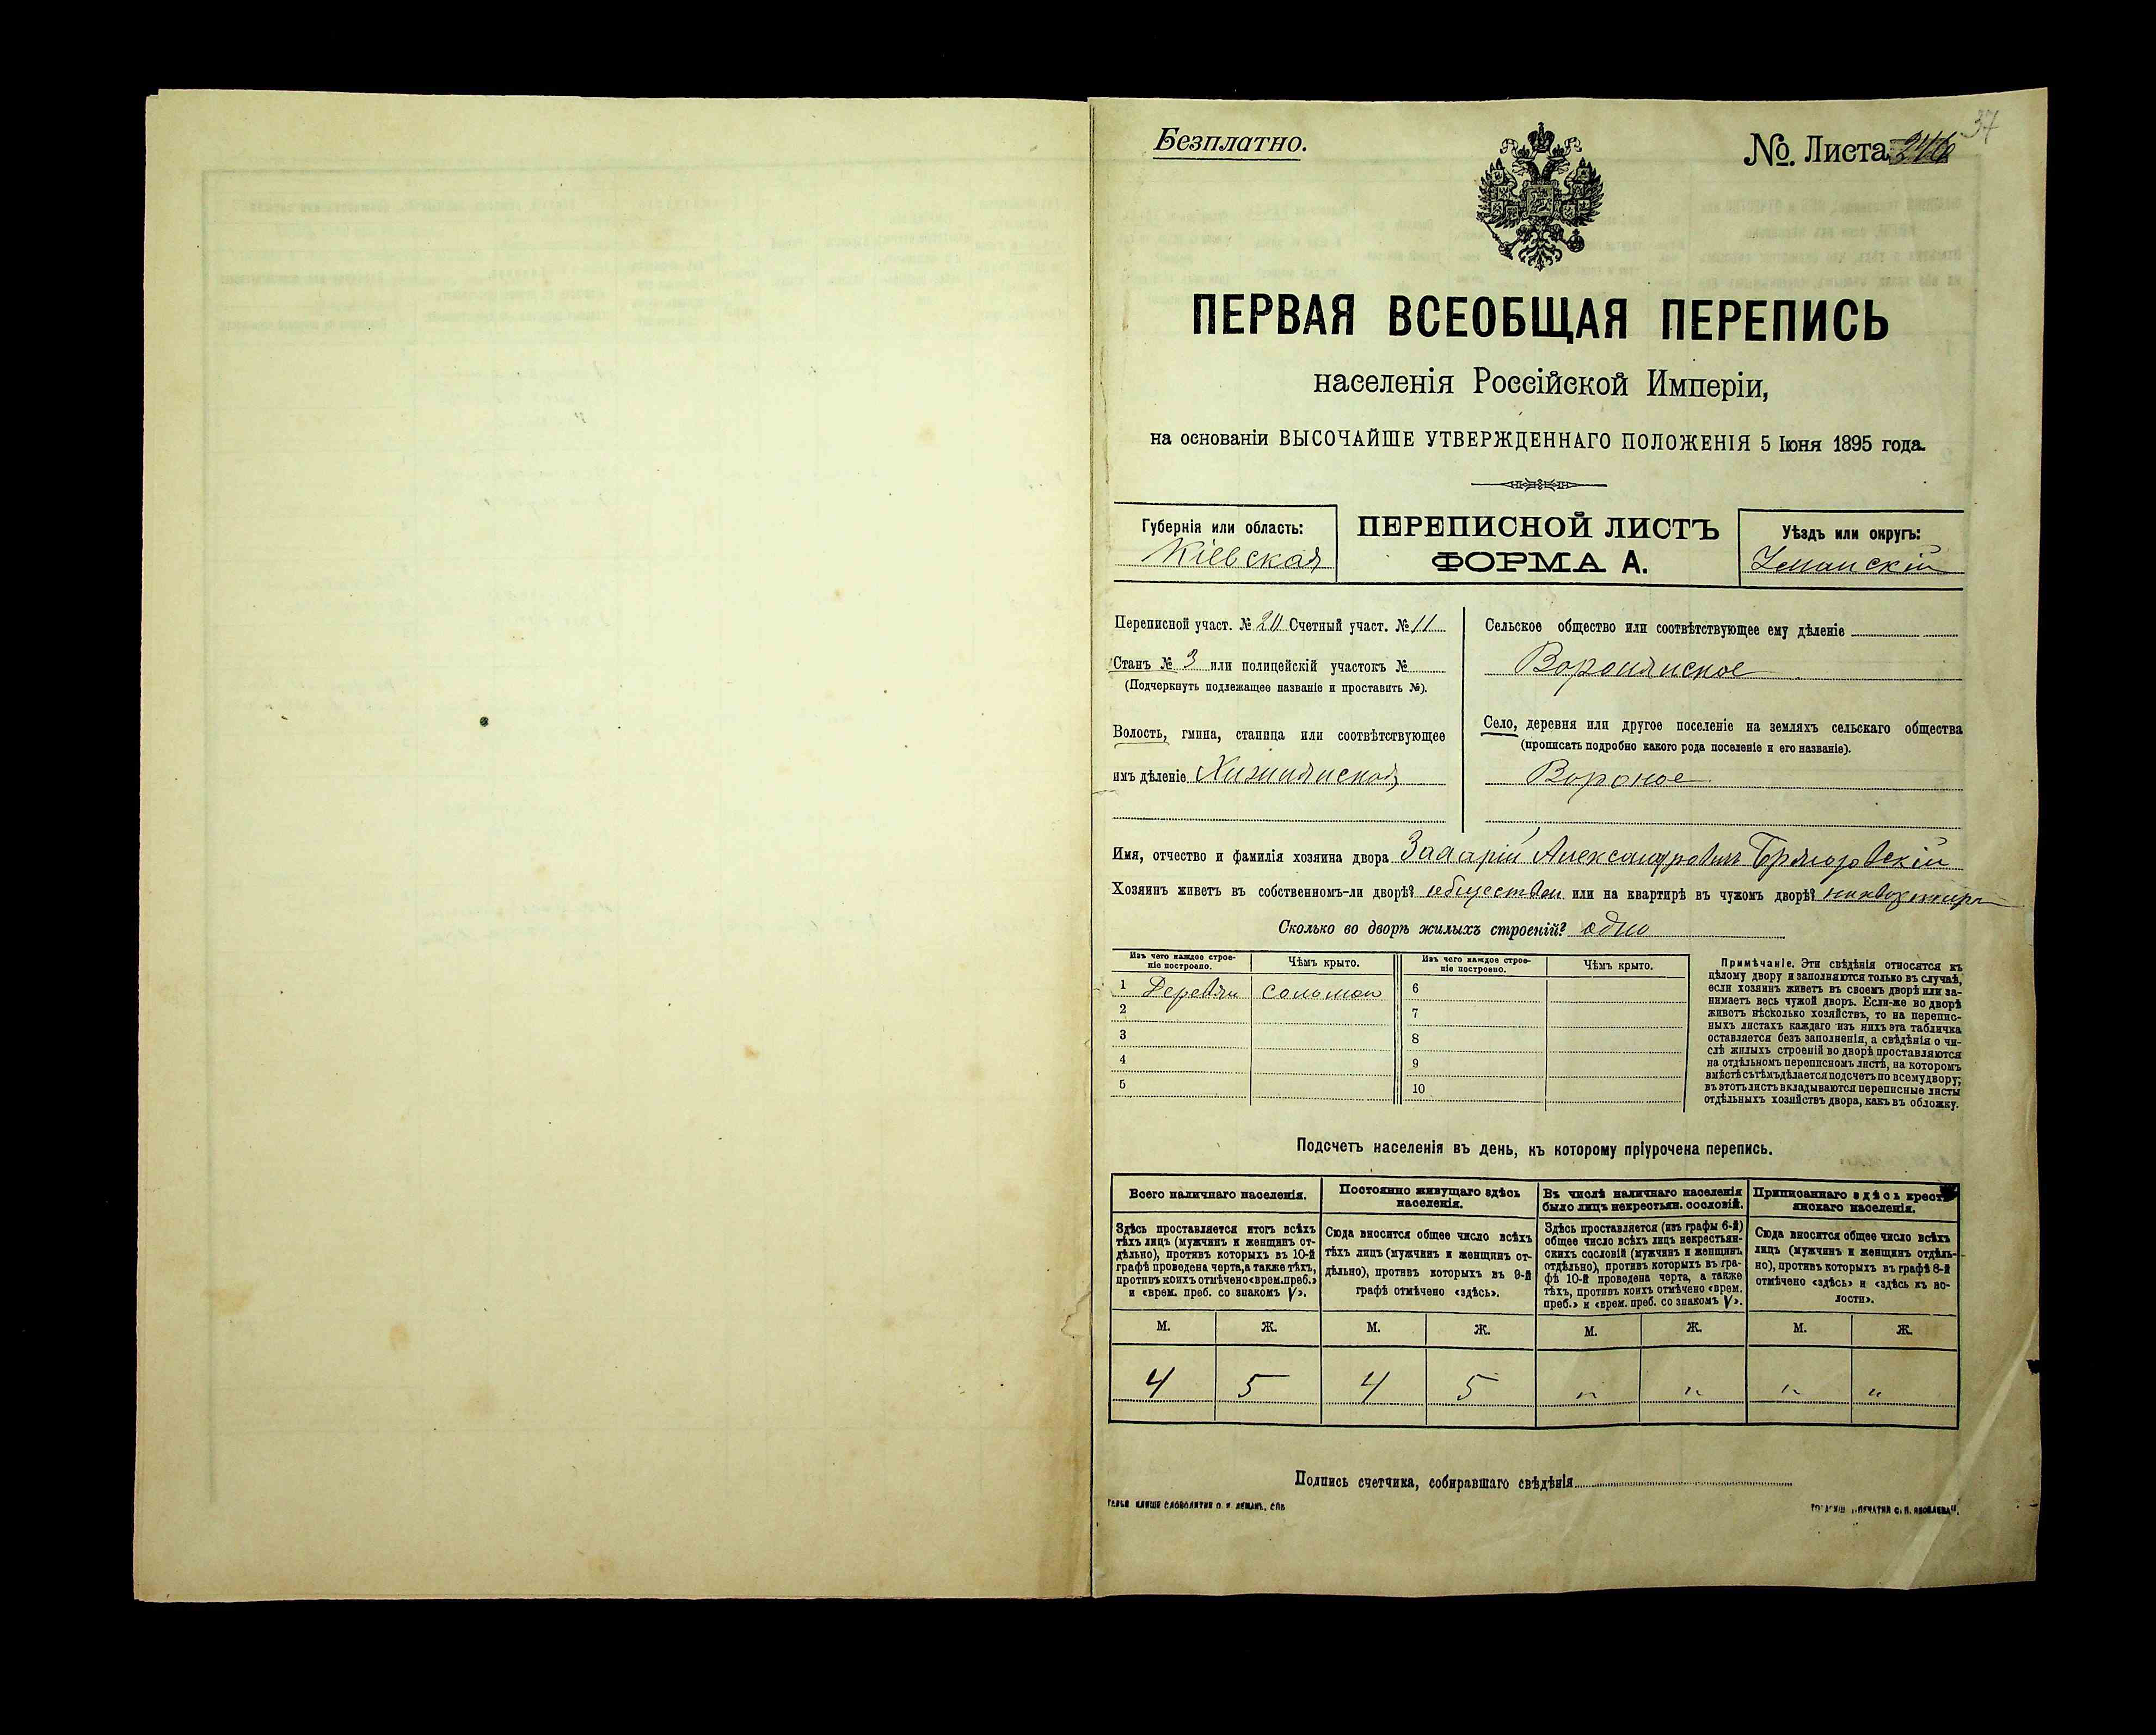 37
Безплатно.
№. Листа 246
ПЕРВАЯ ВСЕОБЩАЯ ПЕРЕПИСЬ
населенія Россійской Имперіи,
на основаніи ВЫСОЧАЙШЕ УТВЕРЖДЕННАГО ПОЛОЖЕНІЯ 5 Іюня 1895 года.
Губернія или область:
Кіевская
ПЕРЕПИСНОЙ ЛИСТЪ
ФОРМА А.
Уѣздъ или округъ:
Уманскій
Переписной участ. № 20 Счетный участ. № 11
Станъ № 3 или полицейскій участокъ №
(Подчеркнуть подлежащее названіе и проставить №).
Волость, гмина, станица или соотвѣтствующее
имъ дѣленіе
Сельское общество или соотвѣтствующее ему дѣленіе
Воронянское
Село, деревня или другое поселеніе на земляхъ сельскаго общества
(прописать подробно какого рода поселеніе и его названіе).
Вороное
Имя, отчество и фамилія хозяина двора Александровичъ
Хозяинъ живетъ въ собственномъ-ли дворѣ? обществен. или на квартирѣ въ чужомъ дворѣ?
Сколько во дворѣ жилыхъ строеній? одно
Изъ чего каждое строеніе построено. Чѣмъ крыто. Изъ чего каждое строеніе построено. Чѣмъ крыто.
1 Деревян соломою 6
2 7
3 8
4 9
5 10
Примѣчаніе. Эти свѣдѣнія относятся къ
цѣлому двору и заполняются только въ случаѣ,
если хозяинъ живетъ въ своемъ дворѣ или за-
нимаетъ весь чужой дворъ. Если-же во дворѣ
живетъ нѣсколько хозяйствъ, то на перепис-
ныхъ листахъ каждаго изъ нихъ эта табличка
оставляется безъ заполненія, а свѣдѣнія о чи-
слѣ жилыхъ строеній во дворѣ проставляются
на отдѣльномъ переписномъ листѣ, на которомъ
вмѣстѣ съ тѣмъ дѣлается подсчетъ по всему двору;
въ этотъ листъ вкладываются переписные листы
отдѣльныхъ хозяйствъ двора, какъ въ обложку.
Подсчетъ населенія въ день, къ которому пріурочена перепись.
Всего наличнаго населенія.
Здѣсь проставляется итогъ всѣхъ
тѣхъ лицъ (мужчинъ и женщинъ от-
дѣльно), противъ которыхъ въ 10-й
графѣ проведена черта, а также тѣхъ,
противъ коихъ отмѣчено «врем. преб.»
и «врем. преб. со знакомъ V».
Постоянно живущаго здѣсь
населенія.
Сюда вносится общее число всѣхъ
тѣхъ лицъ (мужчинъ и женщинъ от-
дѣльно), противъ которыхъ въ 9-й
графѣ отмѣчено «здѣсь».
Въ числѣ наличнаго населенія
было лицъ некрестьян. сословій.
Здѣсь проставляется (изъ графы 6-й)
общее число всѣхъ лицъ некрестьян-
скихъ сословій (мужчинъ и женщинъ
отдѣльно), противъ которыхъ въ гра-
фѣ 10-й проведена черта, а также
тѣхъ, противъ коихъ отмѣчено «врем.
преб.» и «врем. преб. со знакомъ V».
Приписаннаго здѣсь кресть-
янскаго населенія.
Сюда вносится общее число всѣхъ
лицъ (мужчинъ и женщинъ отдѣль-
но), противъ которыхъ въ графѣ 8-й
отмѣчено «здѣсь» и «здѣсь къ во-
лости».
М. Ж. М. Ж. М. Ж. М. Ж.
4 5 4 5 " " " "
Подпись счетчика, собиравшаго свѣдѣнія